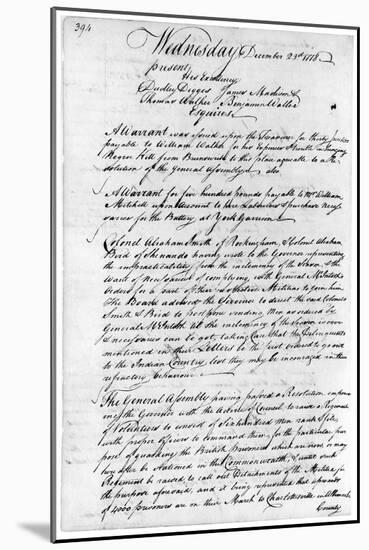 394
Wednesday December 23d 1778
present
His Excellency
Dudley Digges James Madison &
Thomas Walker Benjamin Waller
Esquires
A Warrant was issued upon the Treasurer for thirty
payable to William Walsh for his Expenses &
Roger Hill from Brunswick to this place agreeable to a Re
solution of the General Assembly
A Warrant for five hundred pounds payable to Mr William
Mitchell upon Account to hire Labourers & purchase neces
saries for the Battery at York Garrison
Colonel Abraham Smith of Rockingham, & Colonel Abraham
Bird of Shenando having wrote to the Governor representing
the impracticability from the inclemency of the Season & the
Want of Necessaries of complying with General McIntosh's
Orders for a part of their Militias to join him
The Board advised the Governor to direct the said Colonels
Smith & Bird to postpone sending Men as ordered by
General McIntosh till the inclemency of the Season is over
& necessaries can be got, taking Care that the Delinquents
mentioned in their Letters be the first ordered to go out
to the Indian Country lest they may be encouraged in their
refractory behaviour
The General Assembly having passed a Resolution empowe
ring the Governor with the Advice of Council to raise a Regiment
of Volunteers to consist of Six hundred Men rank & file
with proper officers to command them, for the particular pur
pose of guarding the British Prisoners which are now, or may
hereafter be stationed in this Commonwealth, & until such
Regiment be raised to call out Detachments of the Militia for
the purpose aforesaid, and it being represented that upwards
of 4000 prisoners are on their March to Charlottesville in Albemarle
County